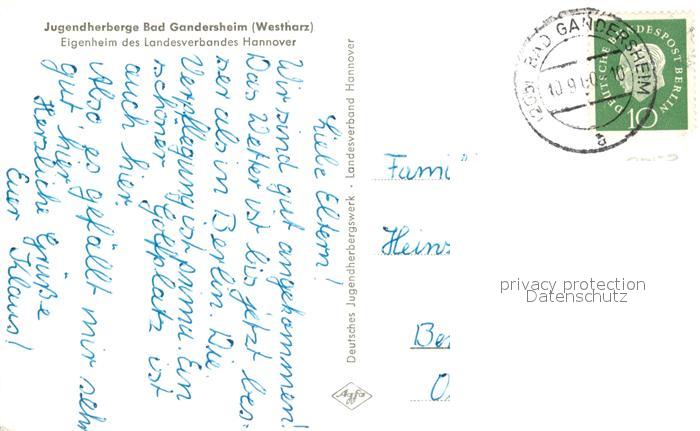 Jugendherberge Bad Gandersheim (Westharz)
Eigenheim des Landesverbandes Hannover
Liebe Eltern!
Wir sind gut angekommen!
Das Wetter ist bis jetzt bes-
ser als in Berlin. Die
Verpflegung ist prima. Ein
schöner Golfplatz ist
auch hier.
Also, es gefällt mir sehr
gut hier.
Herzliche Grüße
Euer Klaus!
Deutsches Jugendherbergswerk · Landesverband Hannover
Agfa
BAD GANDERSHEIM
a
DEUTSCHE BUNDESPOST BERLIN
10
Fami
Heinz
Be
O
privacy protection
Datenschutz